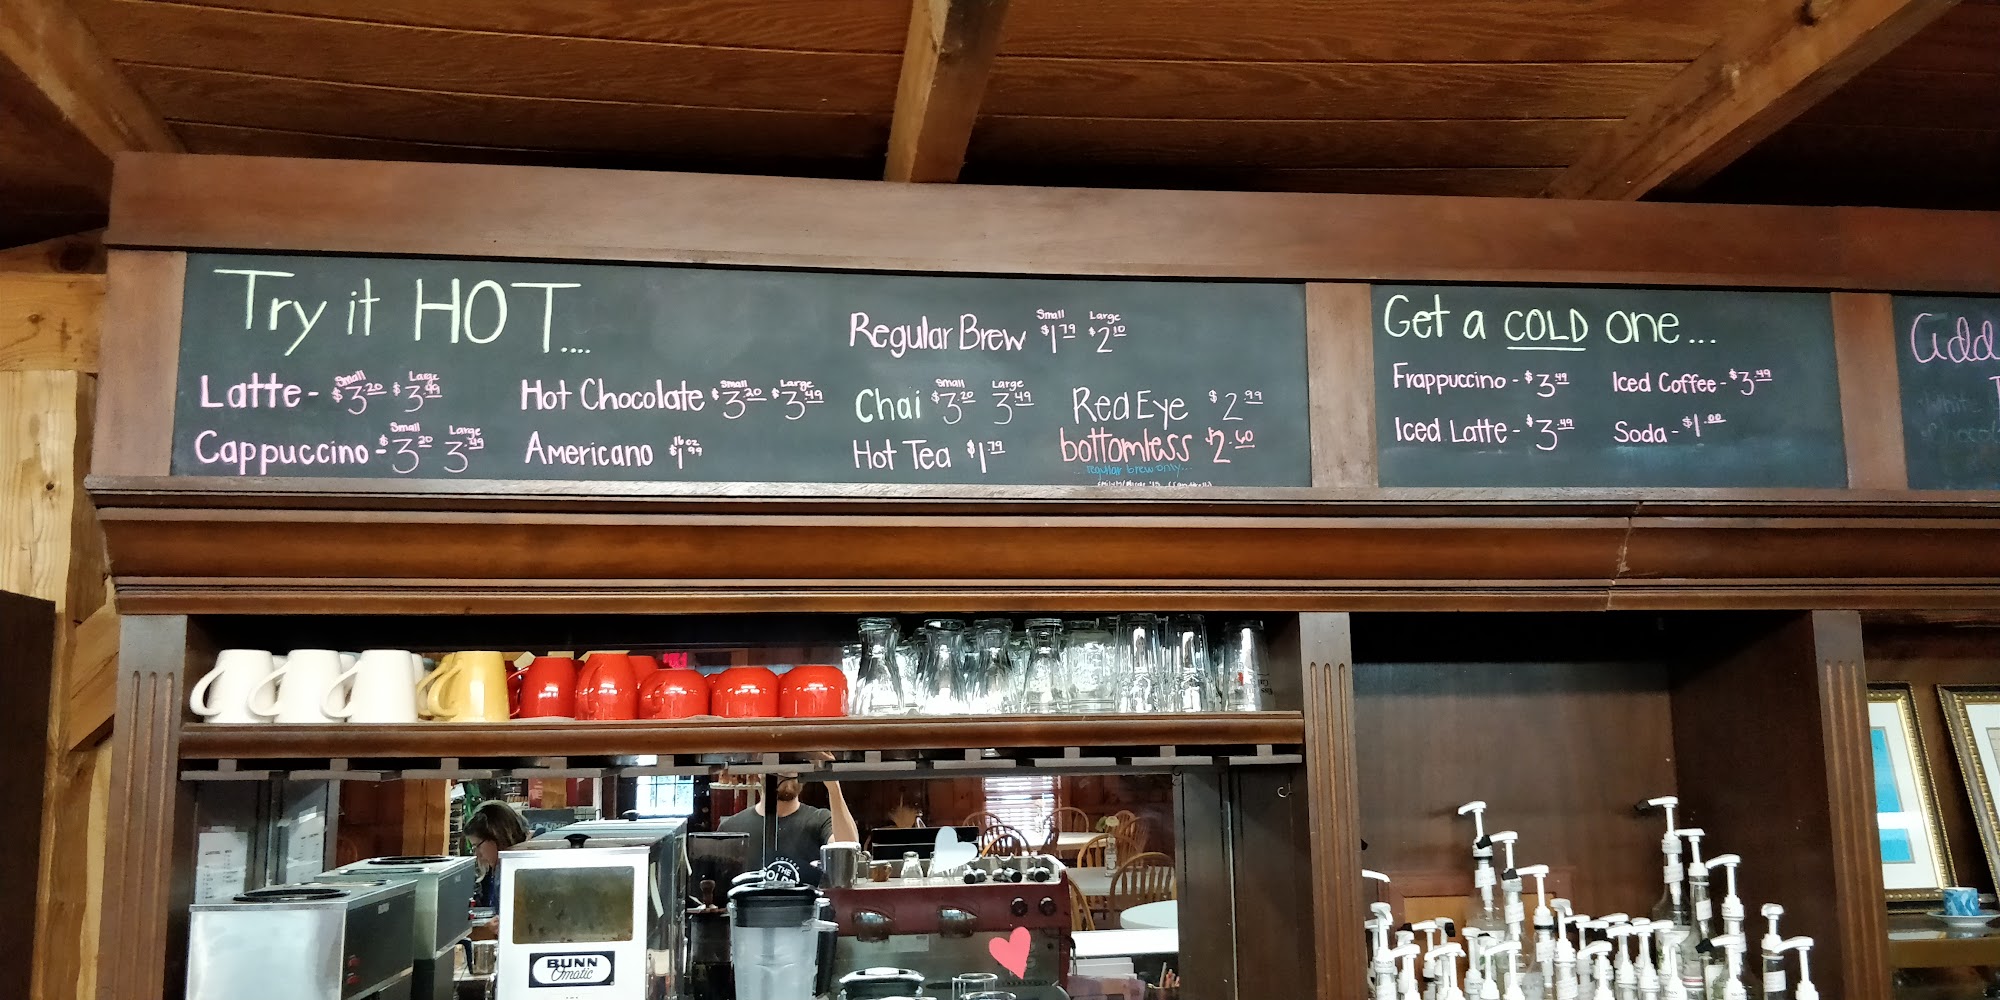 Try it HOT....
Small Large
Latte - $3.20 $3.49
Small Large
Cappuccino - $3.20 3.49
Small Large
Hot Chocolate $3.20 $3.49
16 oz
Americano $1.99
Small Large
Regular Brew $1.79 $2.10
Small Large
Chai $3.20 3.49
Hot Tea $1.79
Red Eye $2.99
bottomless $2.60
...regular brew only...
Get a COLD one...
Frappuccino - $3.49
Iced Latte - $3.49
Iced Coffee - $3.49
Soda - $1.00
add
White
BUNN
Omatic
COFFEE
THE